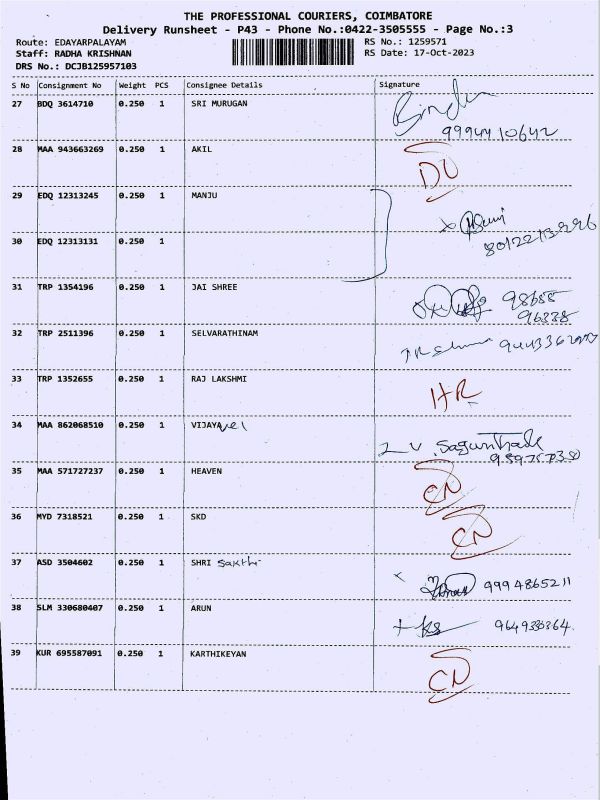 THE PROFESSIONAL COURIERS, COIMBATORE
Delivery Runsheet - P43 - Phone No.:0422-3505555 - Page No.:3
Route: EDAYARPALAYAM RS No.: 1259571
Staff: RADHA KRISHNAN RS Date: 17-Oct-2023
DRS No.: DCJB125957103
S No Consignment No Weight PCS Consignee Details Signature
27 BDQ 3614710 0.250 1 SRI MURUGAN
9994410642
28 MAA 943663269 0.250 1 AKIL DU
29 EDQ 12313245 0.250 1 MANJU
30 EDQ 12313131 0.250 1
31 TRP 1354196 0.250 1 JAI SHREE 98655
96338
32 TRP 2511396 0.250 1 SELVARATHINAM
33 TRP 1352655 0.250 1 RAJ LAKSHMI HR
34 MAA 862068510 0.250 1 VIJAYAvel
35 MAA 571727237 0.250 1 HEAVEN CN
36 MYD 7318521 0.250 1 SKD CN
37 ASD 3504602 0.250 1 SHRI Sakthi 9994865211
38 SLM 330680407 0.250 1 ARUN
39 KUR 695587091 0.250 1 KARTHIKEYAN CN